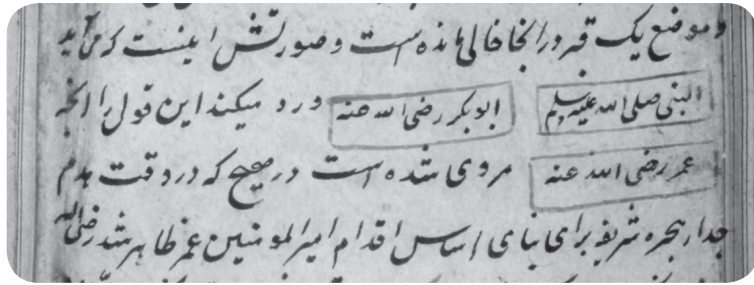 و موضع یک قبر در آنجا خالی مانده است و صورتش اینست که می آید
النبی صلی الله علیه وسلم ابوبکر رضی الله عنه و رد میکند این قول را آنچه
عمر رضی الله عنه مروی شده است در صحیح که در وقت هدم
جدار حجره شریفه برای بنای اساس اقدام امیرالمومنین عمر ظاهر شد رضی الله